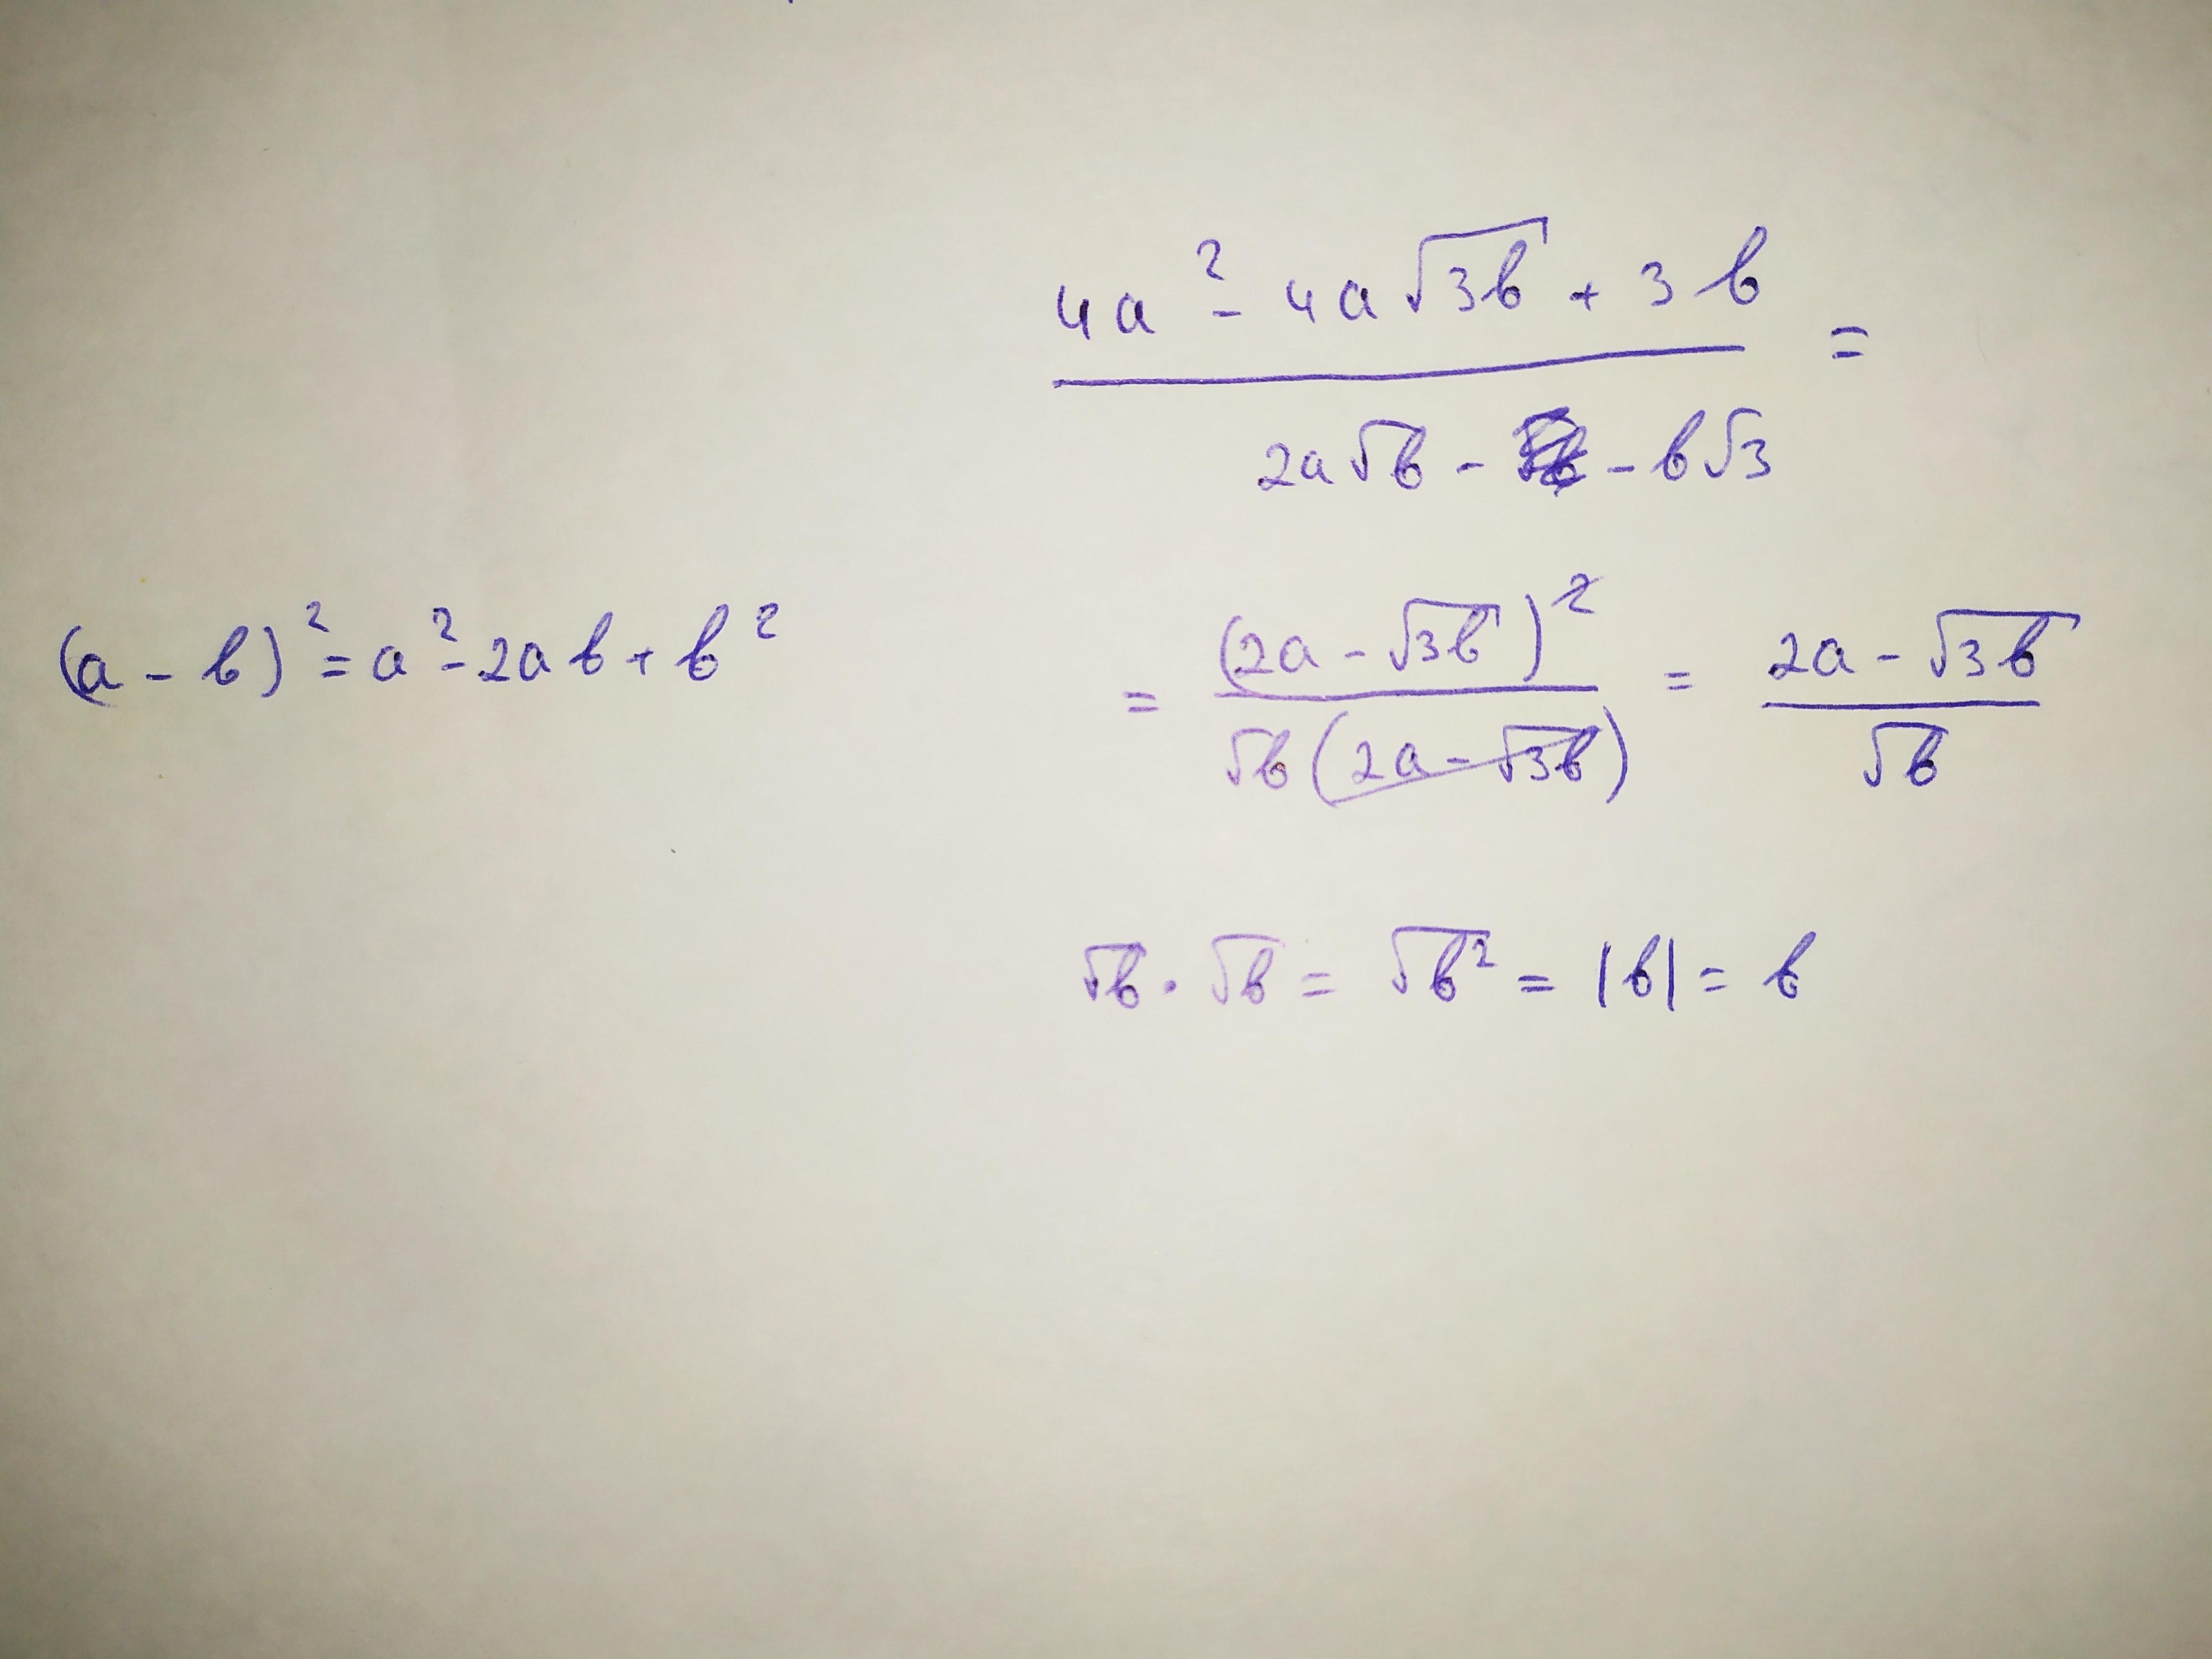 4a² - 4a√3b + 3b =
2a√b - - b√3
(a - b)² = a² - 2ab + b²
= (2a - √3b)² / √b(2a - √3b) = 2a - √3b / √b
√b · √b = √b² = |b| = b